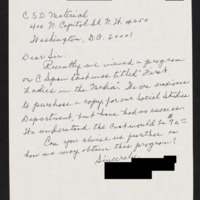 C S D Material
400 N Capitol St. N.W. #650
Washington, D.C. 20001
Dear Sir:
Recently we viewed a program
on C Span that was titled "First
Ladies in the Media". We are anxious
to purchase a copy for our Social Studies
Department, but have had no success.
We understand the cost would be
Can you advise us further on
how we may obtain this program?
Sincerely